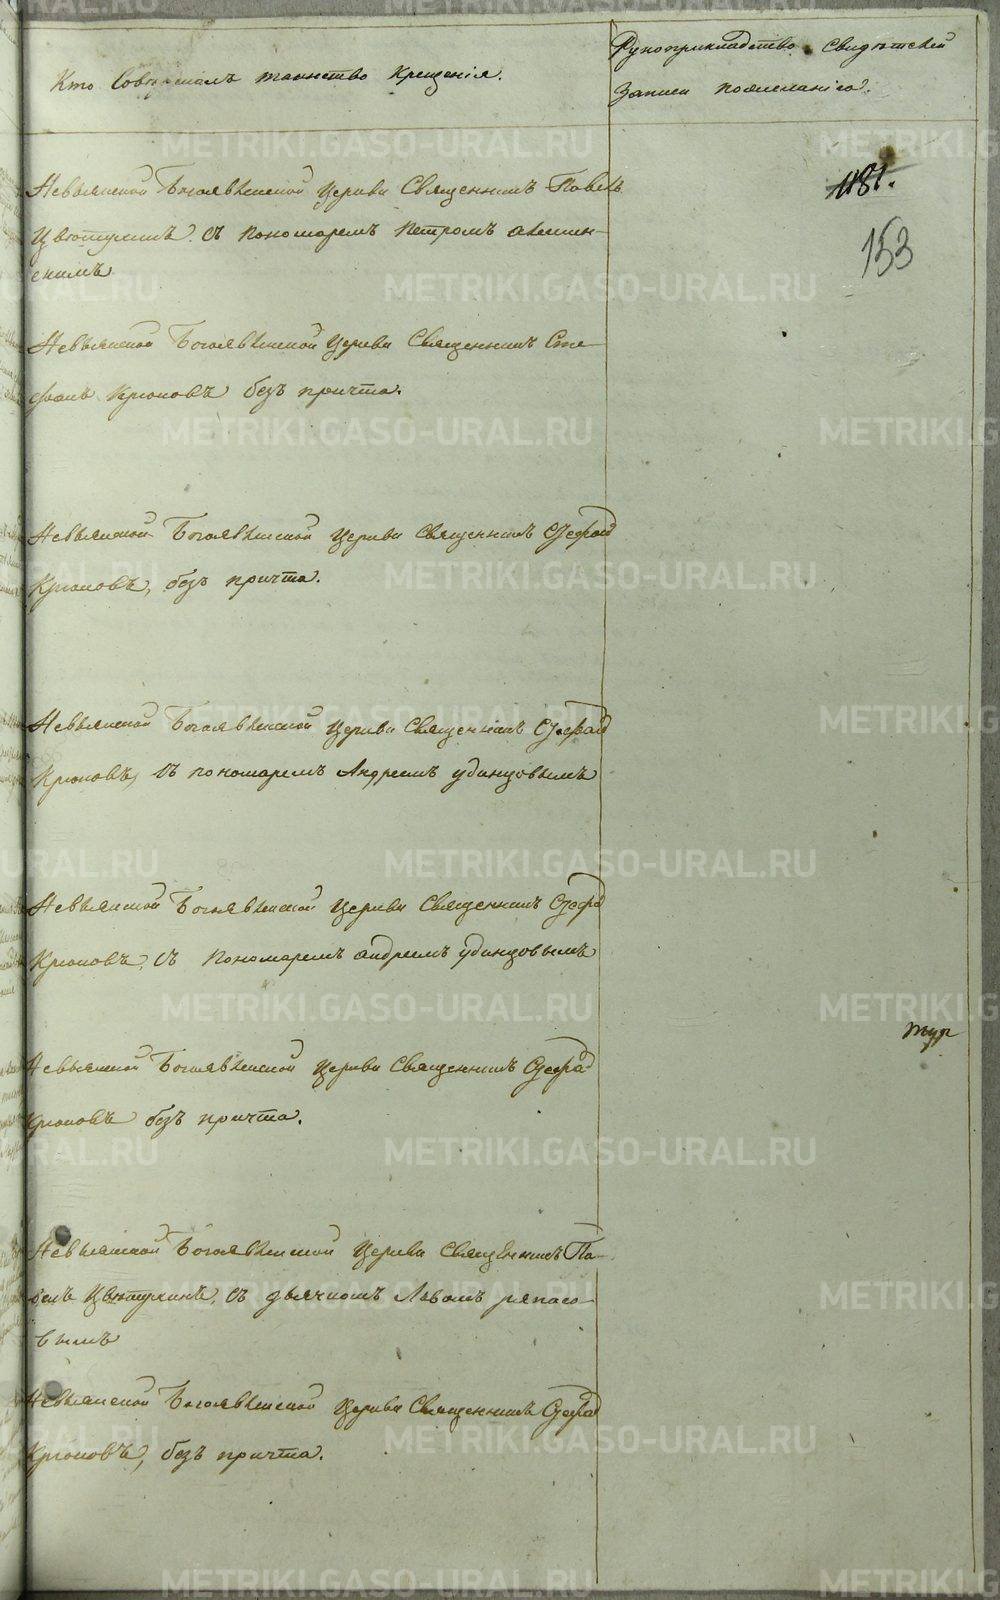 Кто Совершалъ таинство крещенія.
Рукоприкладство Свидѣтелей
записи по желанію.
1181.
153
Невьянской Богоявленской Церкви Священникъ Павелъ
Цвѣтухинъ съ пономаремъ Петромъ
скимъ
Невьянской Богоявленской Церкви Священникъ Сте-
фанъ Крюковъ безъ причта.
Невьянской Богоявленской Церкви Священникъ Стефанъ
Крюковъ, безъ причта.
Невьянской Богоявленской Церкви Священникъ Стефанъ
Крюковъ, съ пономаремъ Андреемъ Удинцовымъ
Невьянской Богоявленской Церкви Священникъ Стефанъ
Крюковъ, съ Пономаремъ Андреемъ Удинцовымъ
Невьянской Богоявленской Церкви Священникъ Стефанъ
Крюковъ безъ причта.
Невьянской Богоявленской Церкви Священникъ Па-
велъ Цвѣтухинъ, съ дьячкомъ Львомъ Ряпасо-
вымъ
Невьянской Богоявленской Церкви Священникъ Стефанъ
Крюковъ, безъ причта.
METRIKI.GASO-URAL.RU